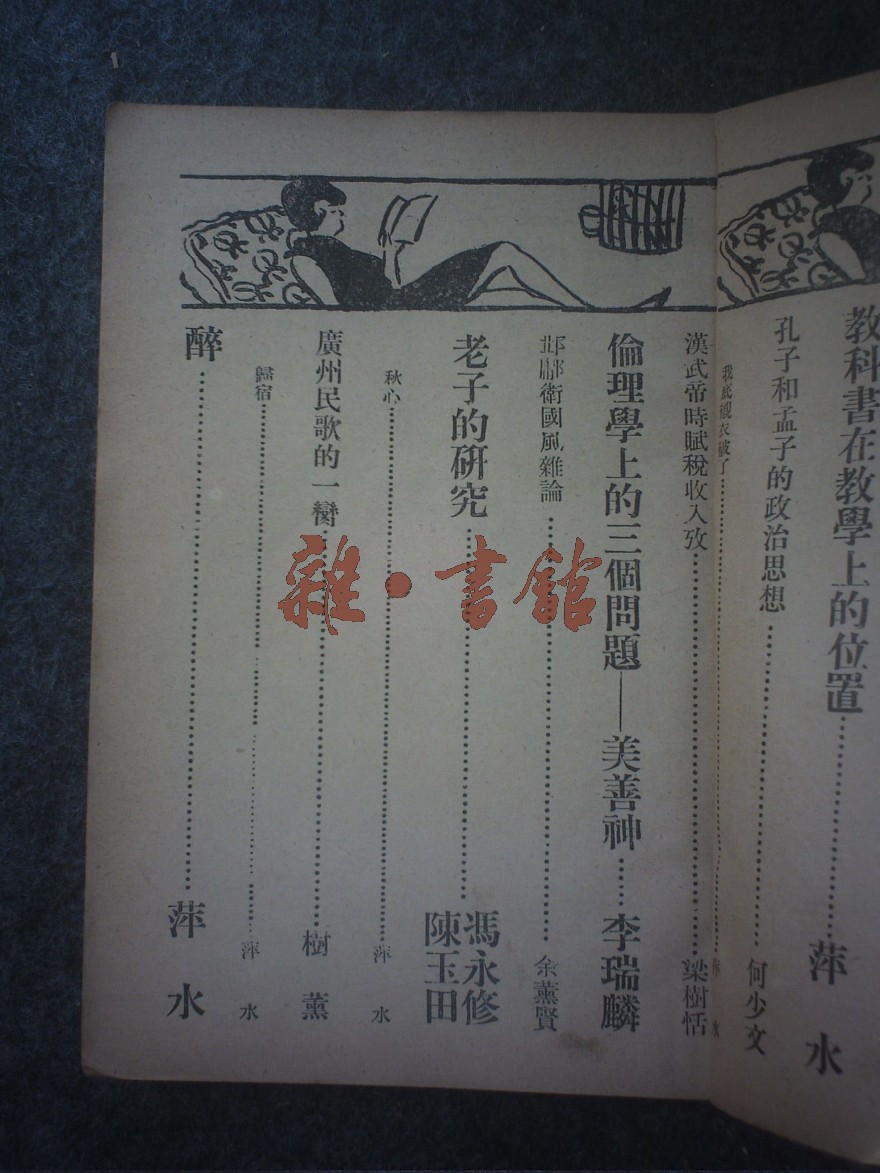 教科書在教學上的位置……萍水
孔子和孟子的政治思想……何少文
我底襯衣破了……萍水
漢武帝時賦稅收入攷……梁樹恬
倫理學上的三個問題——美善神……李瑞麟
邶鄘衛國風雜論……余薰賢
老子的研究……馮永修 陳玉田
秋心……萍水
廣州民歌的一臠……樹薰
歸宿……萍水
醉……萍水
雜·書館